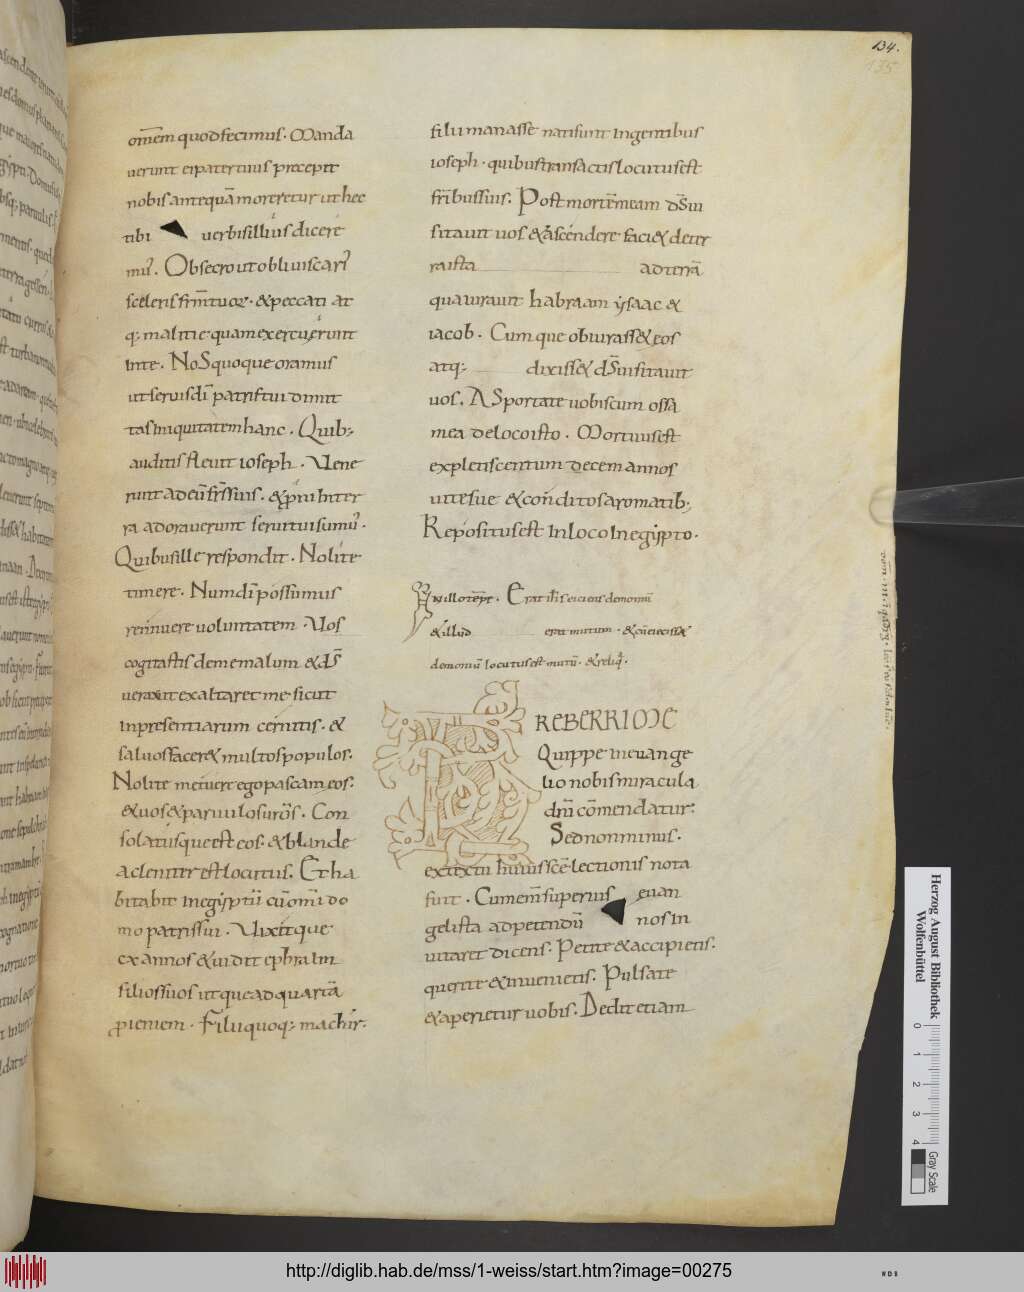 134.
135
om̅em quod fecimus. Manda
uerunt ei pater tuus precepit
nobis antequā moreretur ut hec
tibi uerbis illius dicere
mur. Obsecro ut obliuiscaris
sceleris frm̅ tuoꝝ. & peccati at
q; malitie quam exercuerunt
in te. NoS quoque oramus
ut seruis di̅ patris tui dimit
tas iniquitatem hanc. Quib;
auditis fleuit ioseph. Uene
runt ad eu̅ fr̅s suis. & proni in ter
ra adorauerunt serui tui sumus.
Quibus ille respondit. Nolite
timere. Num di̅ possumus
rennuere uoluntatem. Uos
cogitastis de me malum & ds̅
uerterit exaltaret me sicut
inpresentiarum cernitis. &
saluos facer& multos populos.
Nolite metuere ego pascam eos.
& uos & paruulos uros̅. Con
solatusque est eos. & blande
ac leniter est locutus. Et ha
bitabit in egyptu̅ cu̅ om̅i do
mo patris sui. Uixitque
cx annos & uidit ephraim
filios suos utque ad quartā
progeniem. Filii quoq; machir.
filii manasse nati sunt in genibus
ioseph. quibus transactis locutus est
fr̅ibus suis. Post morte̅ meam ds̅ ui
sitauit uos & ascendere faci& de ter
ra ista ad terrā
qua iurauit habraam ysaac &
iacob. Cumque obiurass& eos
atq; dixiss& ds̅ uisitauit
uos. ASportate uobiscum ossa
mea de loco isto. Mortuus est
expletis centum decem annos
uite sue & conditos aromatib;
Repositus est in loco in egypto.
In illo tēpr. Erat ih̅s eiciens demoniu̅
& illud erat mutum. & cu̅ eiecess&
demoniu̅ locutus est mutu̅. & reliq.
REBERRIME
Quippe in euange
lio nobis miracula
dn̅i co̅mendatur.
Sed non minus.
ex textu huius sce̅ lectionis nota
sunt. Cum em̅ superius euan
gelista ad petendu̅ nos in
uitaret dicens. Petite & accipietis.
querite & inuenietis. Pulsate
& aperietur uobis. Dedit etiam
Herzog August Bibliothek
Wolfenbüttel
0 1 2 3 4
Gray Scale
http://diglib.hab.de/mss/1-weiss/start.htm?image=00275